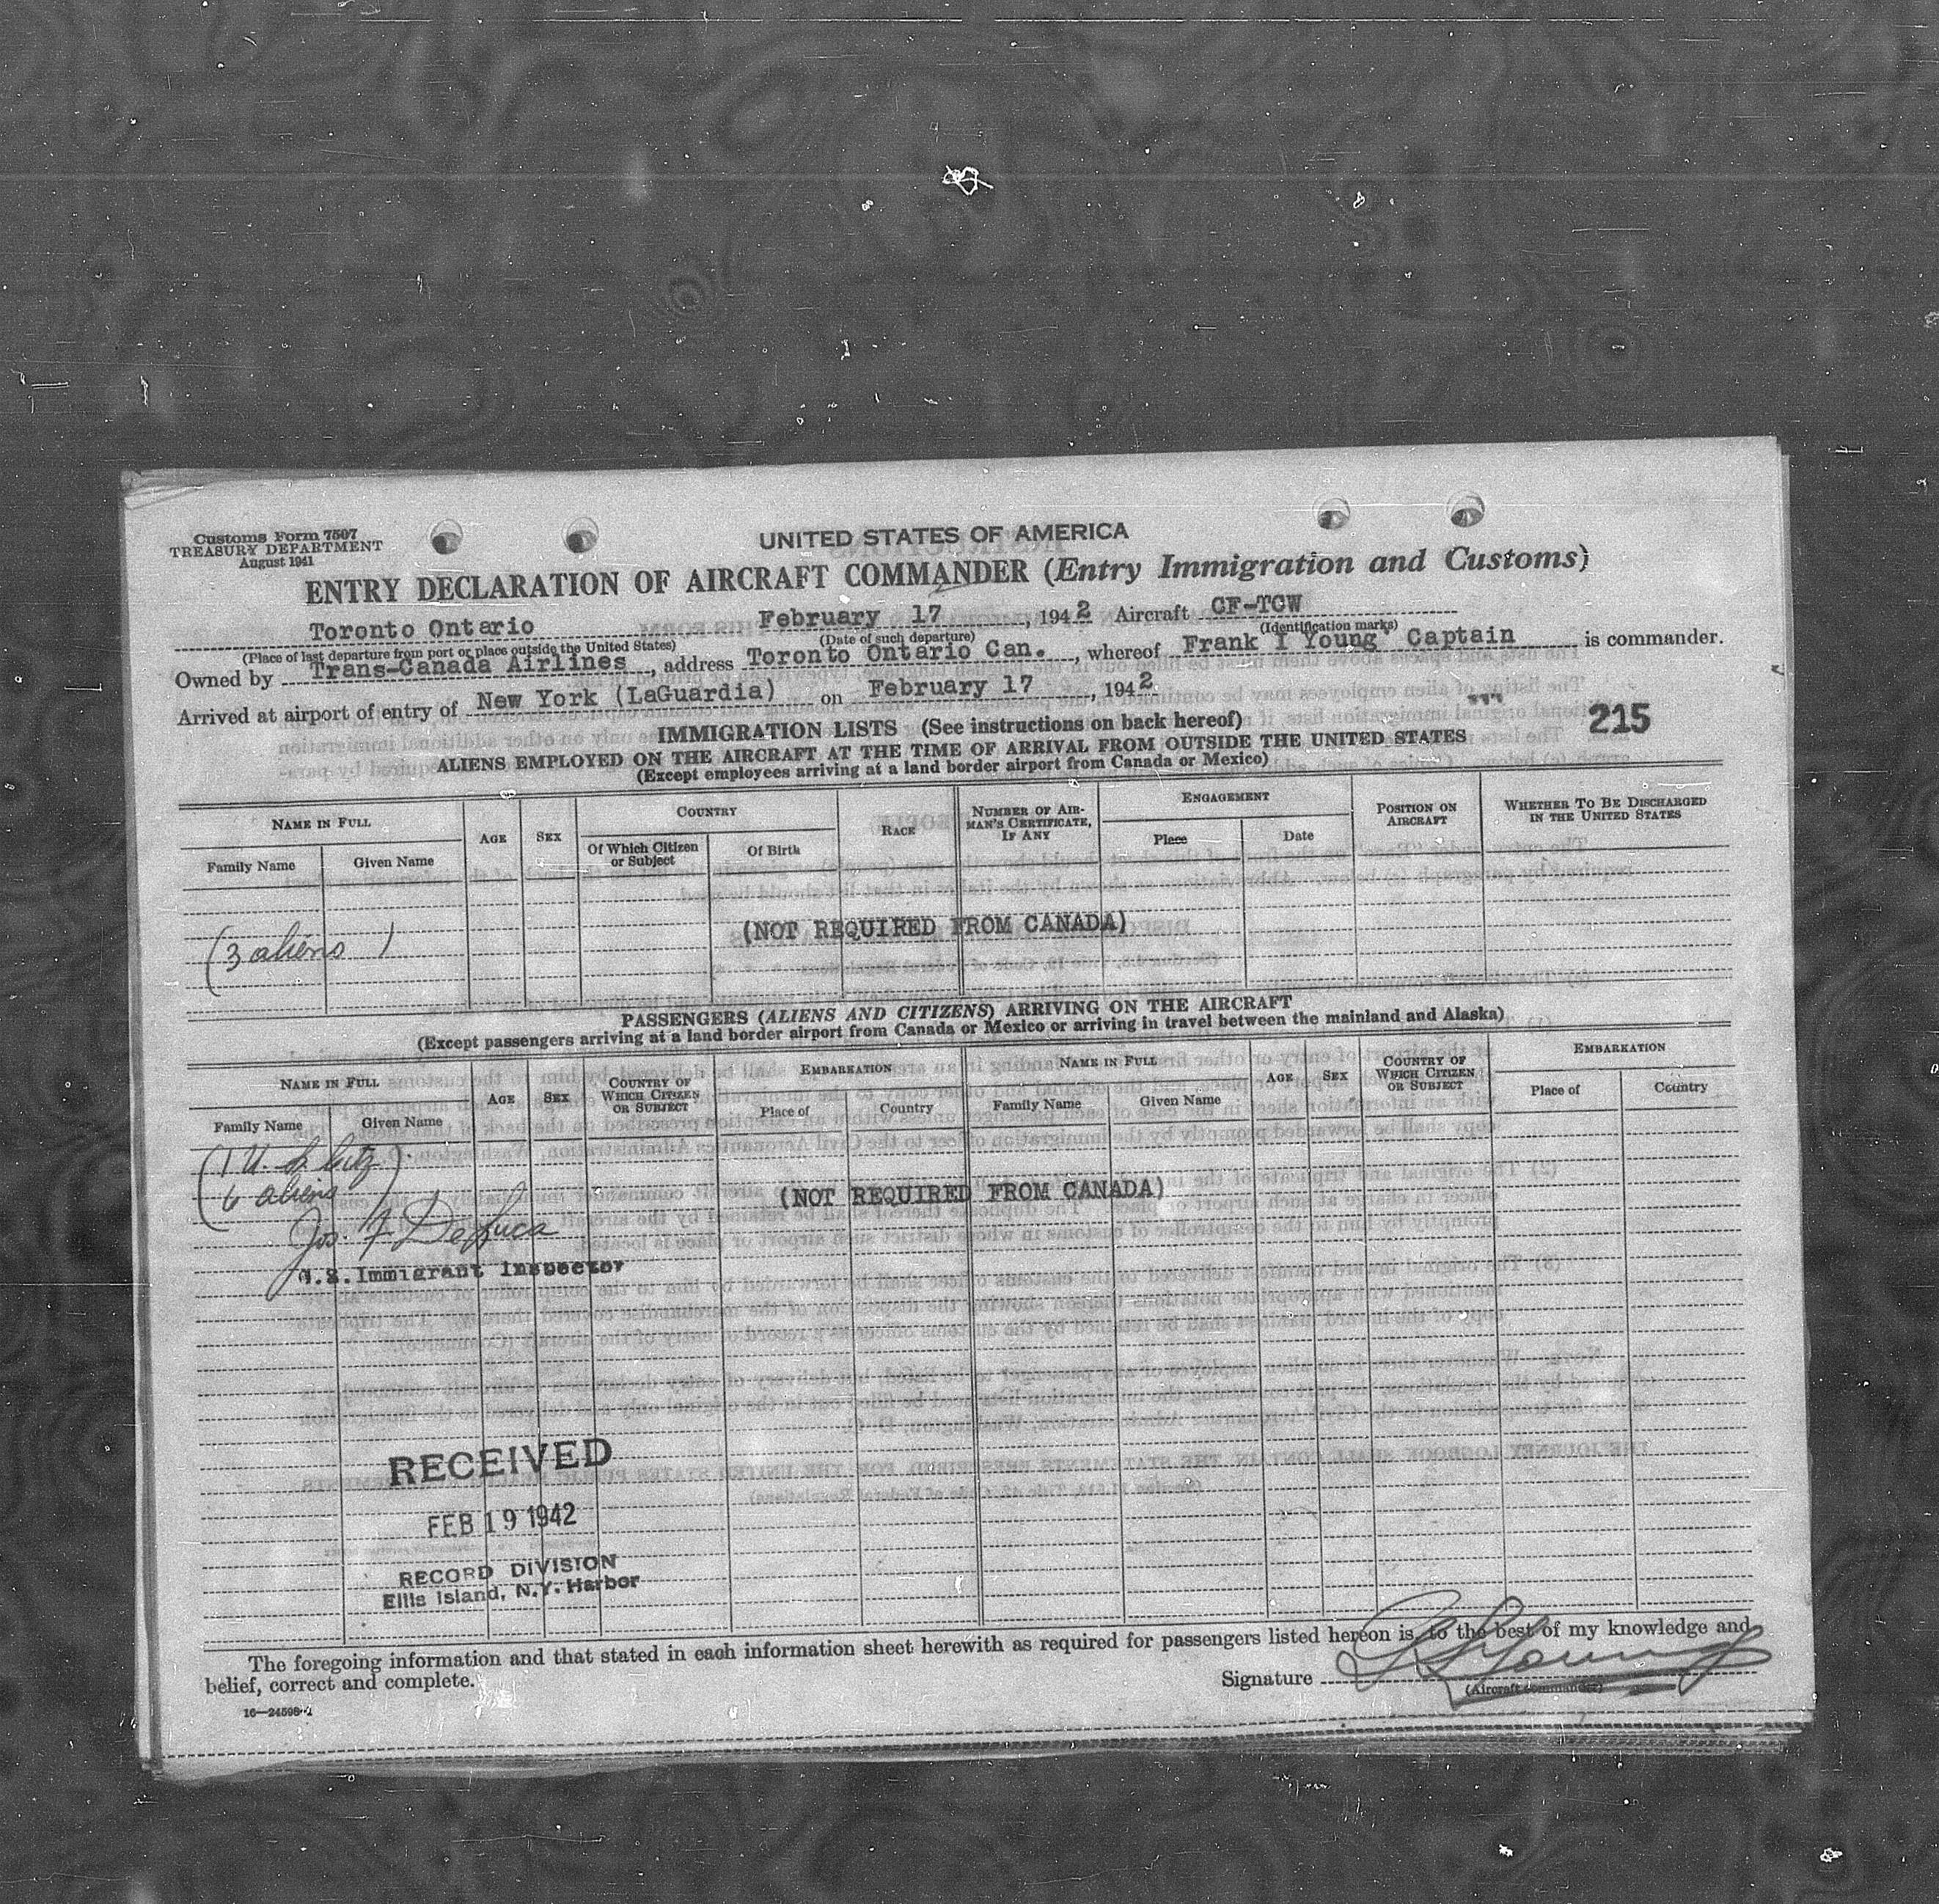 Customs Form 7507
TREASURY DEPARTMENT
August 1941
UNITED STATES OF AMERICA
ENTRY DECLARATION OF AIRCRAFT COMMANDER (Entry Immigration and Customs)
Toronto Ontario February 17, 1942 Aircraft CF-TCW
(Place of last departure from port or place outside the United States) (Date of such departure) (Identification marks)
Owned by Trans-Canada Airlines, address Toronto Ontario Can., whereof Frank I Young Captain is commander.
Arrived at airport of entry of New York (LaGuardia) on February 17, 1942
215
IMMIGRATION LISTS (See instructions on back hereof)
ALIENS EMPLOYED ON THE AIRCRAFT AT THE TIME OF ARRIVAL FROM OUTSIDE THE UNITED STATES
(Except employees arriving at a land border airport from Canada or Mexico)
NAME IN FULL AGE SEX COUNTRY RACE NUMBER OF AIRMAN'S CERTIFICATE, IF ANY ENGAGEMENT POSITION ON AIRCRAFT WHETHER TO BE DISCHARGED IN THE UNITED STATES
Family Name Given Name Of Which Citizen or Subject Of Birth Place Date
(NOT REQUIRED FROM CANADA)
(3 aliens)
PASSENGERS (ALIENS AND CITIZENS) ARRIVING ON THE AIRCRAFT
(Except passengers arriving at a land border airport from Canada or Mexico or arriving in travel between the mainland and Alaska)
NAME IN FULL AGE SEX COUNTRY OF WHICH CITIZEN OR SUBJECT EMBARKATION NAME IN FULL AGE SEX COUNTRY OF WHICH CITIZEN OR SUBJECT EMBARKATION
Family Name Given Name Place of Country Family Name Given Name Place of Country
(1 U. S. Citz)
6 aliens
(NOT REQUIRED FROM CANADA)
Jos. F. DeLuca
U.S. Immigrant Inspector
RECEIVED
FEB 19 1942
RECORD DIVISION
Ellis Island, N.Y. Harbor
The foregoing information and that stated in each information sheet herewith as required for passengers listed hereon is, to the best of my knowledge and
belief, correct and complete.
Signature F I Young
(Aircraft commander)